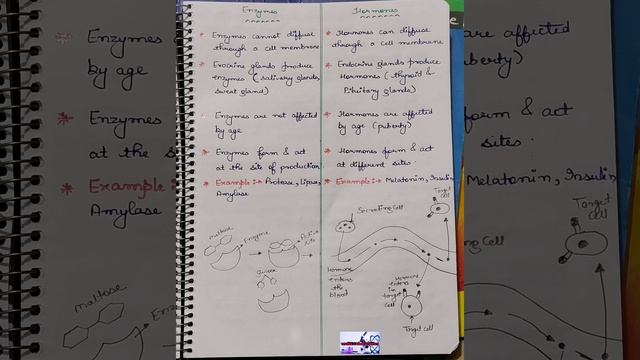 Enzymes
Enzymes cannot diffuse
through a cell membrane
Exocrine glands produce
enzymes (salivary glands,
sweat gland)
Enzymes are not affected
by age
Enzymes form & act
at the site of production
Example :- Protease, Lipase,
Amylase
Maltose
Enzyme
Active
site
Glucose
Hormones
Hormones can diffuse
through a cell membrane
Endocrine glands produce
Hormones (thyroid &
Pituitary glands)
Hormones are affected
by age (puberty)
Hormones form & act
at different sites.
Example :- Melatonin, Insulin
Secreting Cell
Target
Cell
Hormone
enters
the
blood
Hormone
enters
in
target
cell
Target Cell
Enzymes
by age
Enzymes
at the s
Example :
Amylase
Maltose
En
are affected
berty)
orm & act
sites.
Melatonin, Insulin
Target
Cell
ng Cell